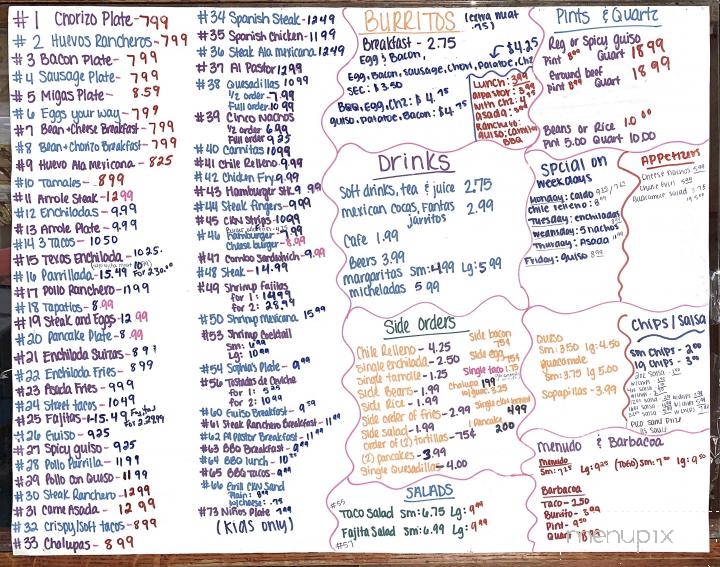 #1 Chorizo Plate - 7 99
#2 Huevos Rancheros - 7 99
#3 Bacon Plate - 7 99
#4 Sausage Plate - 7 99
#5 Migas Plate - 8.59
#6 Eggs your way - 7 99
#7 Bean + Cheese Breakfast - 7 99
#8 Bean + Chorizo Breakfast - 7 99
#9 Huevo Ala Mexicana - 8 25
#10 Tamales - 8 99
#11 Arrole Steak - 12 99
#12 Enchiladas - 9.99
#13 Arrole Plate - 9.99
#14 3 Tacos - 10 50
#15 Texas Enchilada - 10 25
#16 Parrillada - 15.49 for 2 30.00
#17 Pollo Ranchero - 11 99
#18 Tapatios - 8.99
#19 Steak and Eggs - 12 99
#20 Pancake Plate - 8.99
#21 Enchilada Suizas - 8 99
#22 Enchilada Fries - 8 99
#23 Asada Fries - 9 99
#24 Street tacos - 10 49
#25 Fajitas - 15.49
#26 Guiso - 9 25
#27 Spicy guiso - 9 25
#28 Pollo Parrilla - 11 99
#29 Pollo Con Guiso - 11 99
#30 Steak Ranchero - 12 99
#31 Carne Asada - 12 99
#32 Crispy/Soft tacos - 8 99
#33 Chalupas - 8 99
#34 Spanish Steak - 12 49
#35 Spanish Chicken - 11 99
#36 Steak Ala Mexicana 12 49
#37 Al Pastor 12 99
#38 Quesadillas 10 99
1/2 order - 7.99
Full order 10.99
#39 Cinco Nachos
1/2 order 6.99
Full order 9.25
#40 Carnitas 10 99
#41 Chile Relleno 9.99
#42 Chicken Fry 9.99
#43 Hamburger Stk 9 99
#44 Steak Fingers - 9 99
#45 CKN Strips - 10 99
#46
Hamburger
Cheese burger - 8.99
#47 Combo Sandwich - 9.99
#48 Steak - 14.99
#49 Shrimp Fajitas
for 1: 14.99
for 2: 28.99
#50 Shrimp Mexicana 15 99
#53 Shrimp Cocktail
Sm: 6.99
Lg: 10.99
#54 Sophia's Plate - 9.99
#56 Tostadas de Ceviche
for 1: 5.25
for 2: 10.99
#60 Guiso Breakfast - 9.59
#61 Steak Ranchero Breakfast - 11.99
#62 Al Pastor Breakfast - 11.99
#63 BBQ Breakfast - 9.99
#64 BBQ lunch - 10.99
#65 BBQ Tacos - 9.99
#66 Grill CKN Sand
Plain: 8.99
w/cheese: .75
#73 Niños Plate 7.99
(Kids only)
BURRITOS
(extra meat .75)
Breakfast - 2.75
Egg & Bacon,
$4.25
Egg, Bacon, Sausage, Chori, Potatoe, Chz
SEC: $3.50
BBQ, Egg, Chz: $4.75
guiso, Potatoe, Bacon: $4.75
Lunch: 3.99
Al pastor: 3.99
with Chz: 4
Asada: 3.99
Ranchero:
Guiso, Carnitas
BBQ
Drinks
Soft drinks, tea & juice 2.75
mexican cocas, Fantas 2.99
Jarritos
Cafe 1.99
Beers 3.99
margaritas Sm: 4.99 Lg: 5.99
micheladas 5 99
Side orders
Chile Relleno - 4.25
Single enchilada - 2.50
Single tamelle - 1.25
Side Beans - 1.99
Side Rice - 1.99
Side order of fries - 2.99
Side Salad - 1.99
Order of (2) tortillas - 75¢
(2) pancakes - 3.99
Single Quesadilla - 4.00
Side bacon
75¢
Side egg
75¢
Single taco 1.75
Chalupa 1 99
w/ guac 3.25
Single CKN tender
4 99
1 Pancake
2.00
SALADS
#55
Taco Salad Sm: 6.75 Lg: 9.99
Fajita Salad Sm: 6.99 Lg: 9.99
#57
Pints & Quartz
Reg or Spicy guiso
Pint 8.99 Quart 18 99
Ground beef
Pint 8.99 Quart 18 99
Beans or Rice
Pint 5.00 Quart 10.00
Spcial on
weekdays
Monday: Caldo
Chile relleno: 8.99
Tuesday: enchiladas
wednesday: 5 nachos
Thursday: Asada
Friday: Guiso 8.99
Appetizers
Cheese Nachos 5.99
Chile Fries 5.99
Guacamole Salad 3.75
Queso
Sm: 3.50 Lg: 4.50
guacamole
Sm: 3.75 Lg 5.00
Sopapillas - 3.99
Chips/Salsa
Sm Chips - 2.00
lg Chips - 3.00
Menudo & Barbacoa
Menudo
Sm: 7.25 Lg: 9.25 (TOGO) Sm: 7.50 Lg: 9.50
Barbacoa
Taco - 2.50
Burrito - 3.99
Pint - 9.50
Quart
menupix